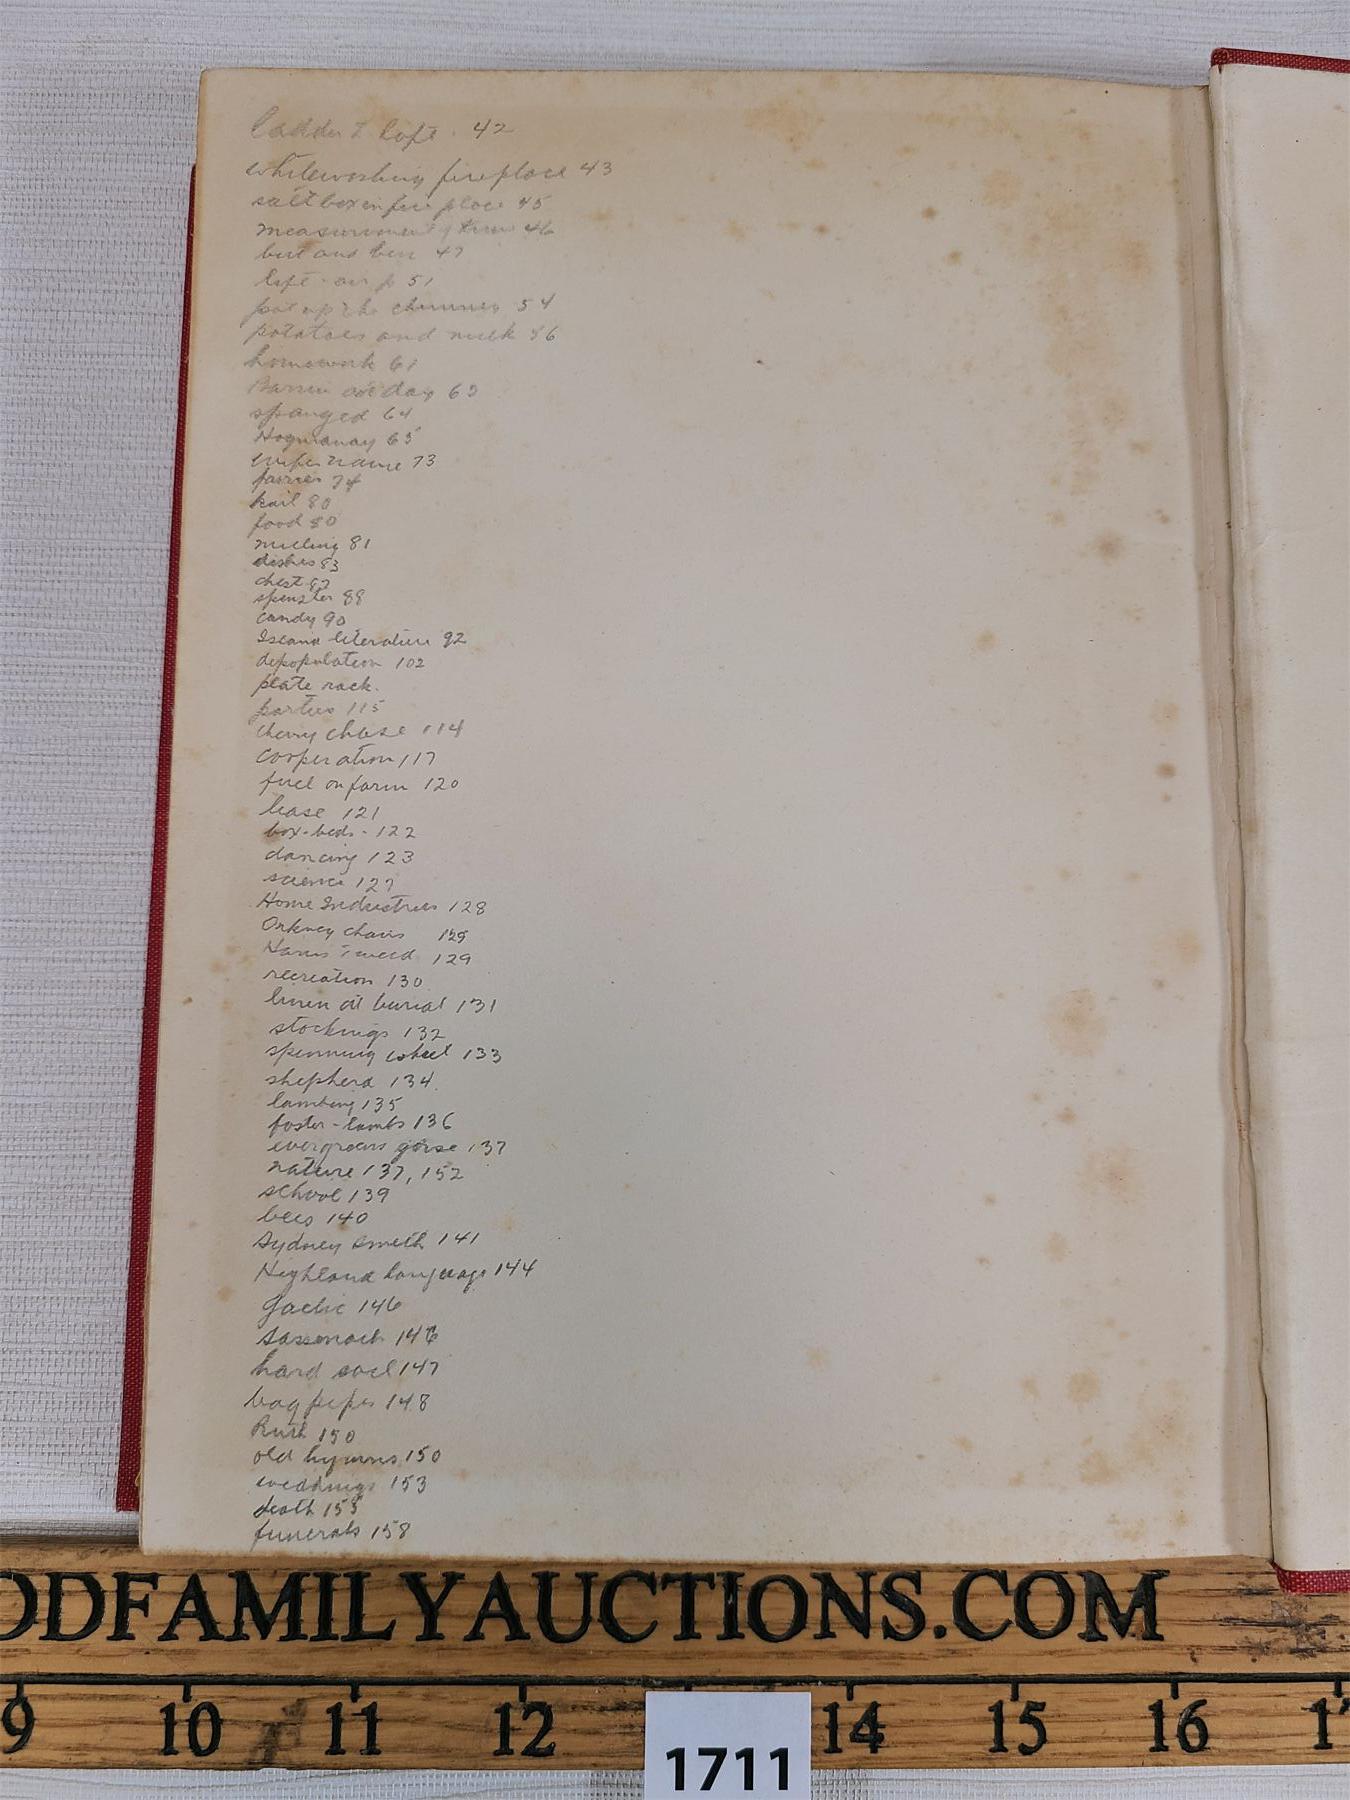 ladder to loft. 42
whitewashing fireplace 43
salt box in fire place 45
measurement of time 46
but and ben 47
51
pot up the chimney 54
potatoes and milk 56
homework 61
day 63
sponged 64
Hogmanay 65
wifes name 73
fairies 74
kail 80
food 80
milling 81
dishes 83
chest 87
spinster 88
candy 90
Island literature 92
depopulation 102
plate rack.
parties 115
chevy chase 114
cooperation 117
fuel on farm 120
lease 121
box-beds - 122
dancing 123
science 127
Home Industries 128
Orkney chairs 129
Harris Tweed 129
recreation 130
linen at burial 131
stockings 132
spinning wheel 133
shepherd 134
lambing 135
foster-lambs 136
evergreens gorse 137
nature 137, 152
school 139
bees 140
Sydney Smith 141
Highland language 144
Gaelic 146
Sassenach 146
hard soil 147
bag pipes 148
Ruth 150
old hymns 150
weddings 153
death 155
funerals 158
ODFAMILYAUCTIONS.COM
9 10 11 12 14 15 16
1711